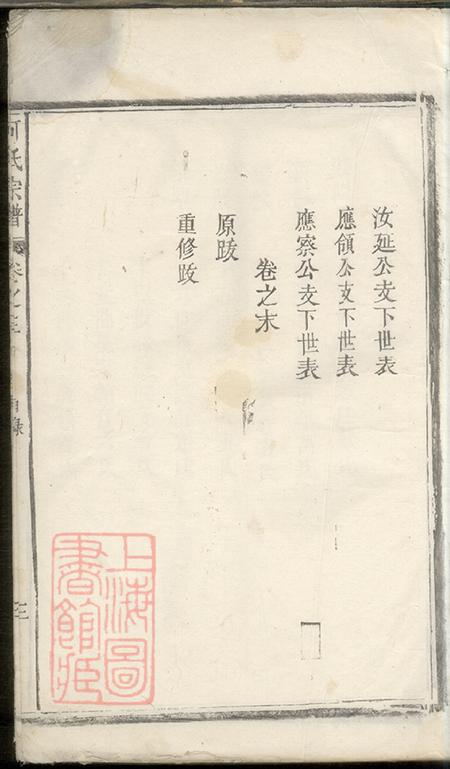 汝延公支下世表
應領公支下世表
應察公支下世表
卷之末
原跋
重修跋
何氏宗譜
卷之三
目錄
三
上海圖書館藏